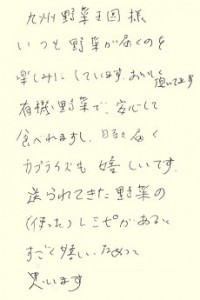 九州野菜王国様
いつも野菜が届くのを
楽しみにしています。おいしく頂いてます
有機野菜で、安心して
食べれますし、時々届く
サプライズも嬉しいです。
送られてきた野菜の
(使った)レシピがあると
すごく嬉しいなぁって
思います